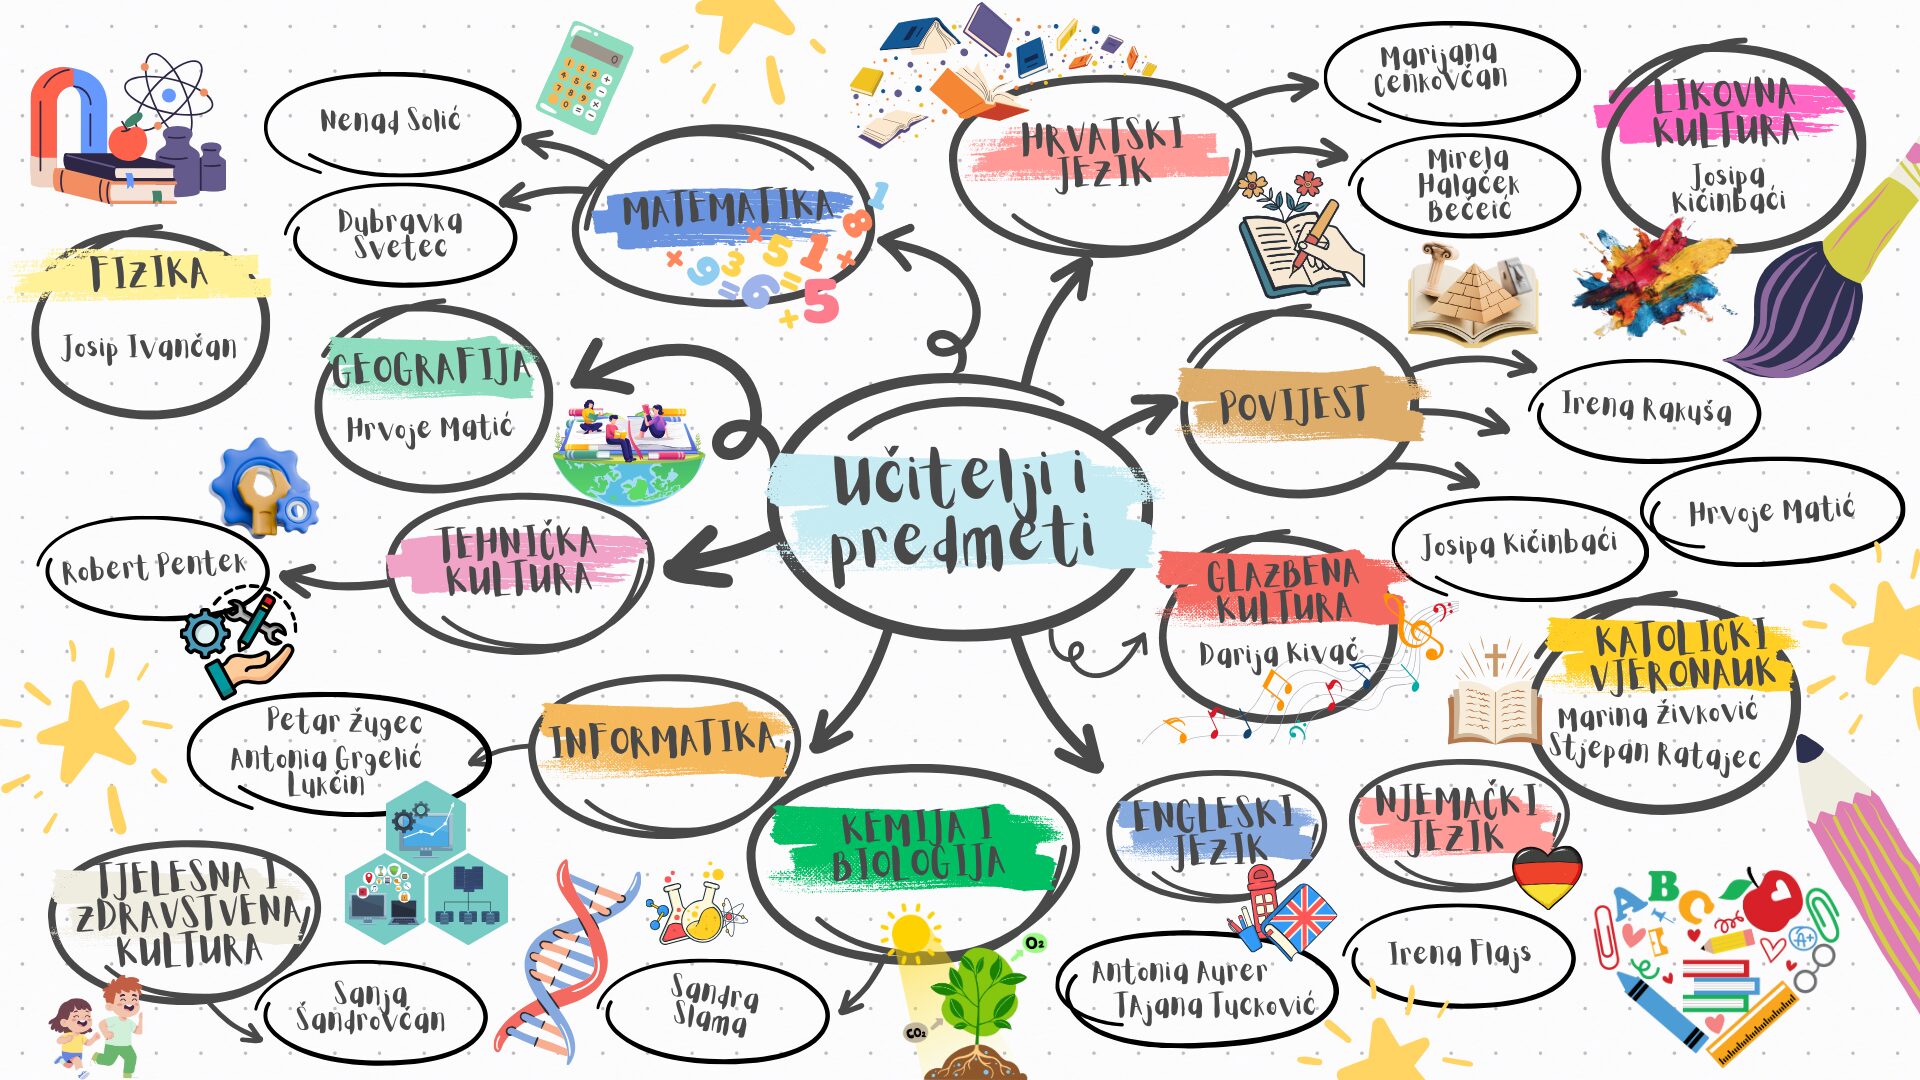 učitelji i
predmeti
MATEMATIKA
Nenad Solić
Dubravka
Svetec
HRVATSKI
JEZIK
Marijana
Cenkovčan
Mirela
Halaček
Bečeić
LIKOVNA
KULTURA
Josipa
Kičinbaći
FIZIKA
Josip Ivančan
GEOGRAFIJA
Hrvoje Matić
POVIJEST
Irena Rakuša
Hrvoje Matić
Josipa Kičinbaći
TEHNIČKA
KULTURA
Robert Pentek
GLAZBENA
KULTURA
Darija Kivač
KATOLIČKI
VJERONAUK
Marina Živković
Stjepan Ratajec
INFORMATIKA
Petar Žugec
Antonia Grgelić
Lukčin
KEMIJA I
BIOLOGIJA
Sandra
Slama
ENGLESKI
JEZIK
Antonia Aurer
TAjana Tucković
NJEMAČKI
JEZIK
Irena Flajs
TJELESNA I
ZDRAVSTVENA
KULTURA
Sanja
Šandrovčan
O2
CO2
ABC
A+